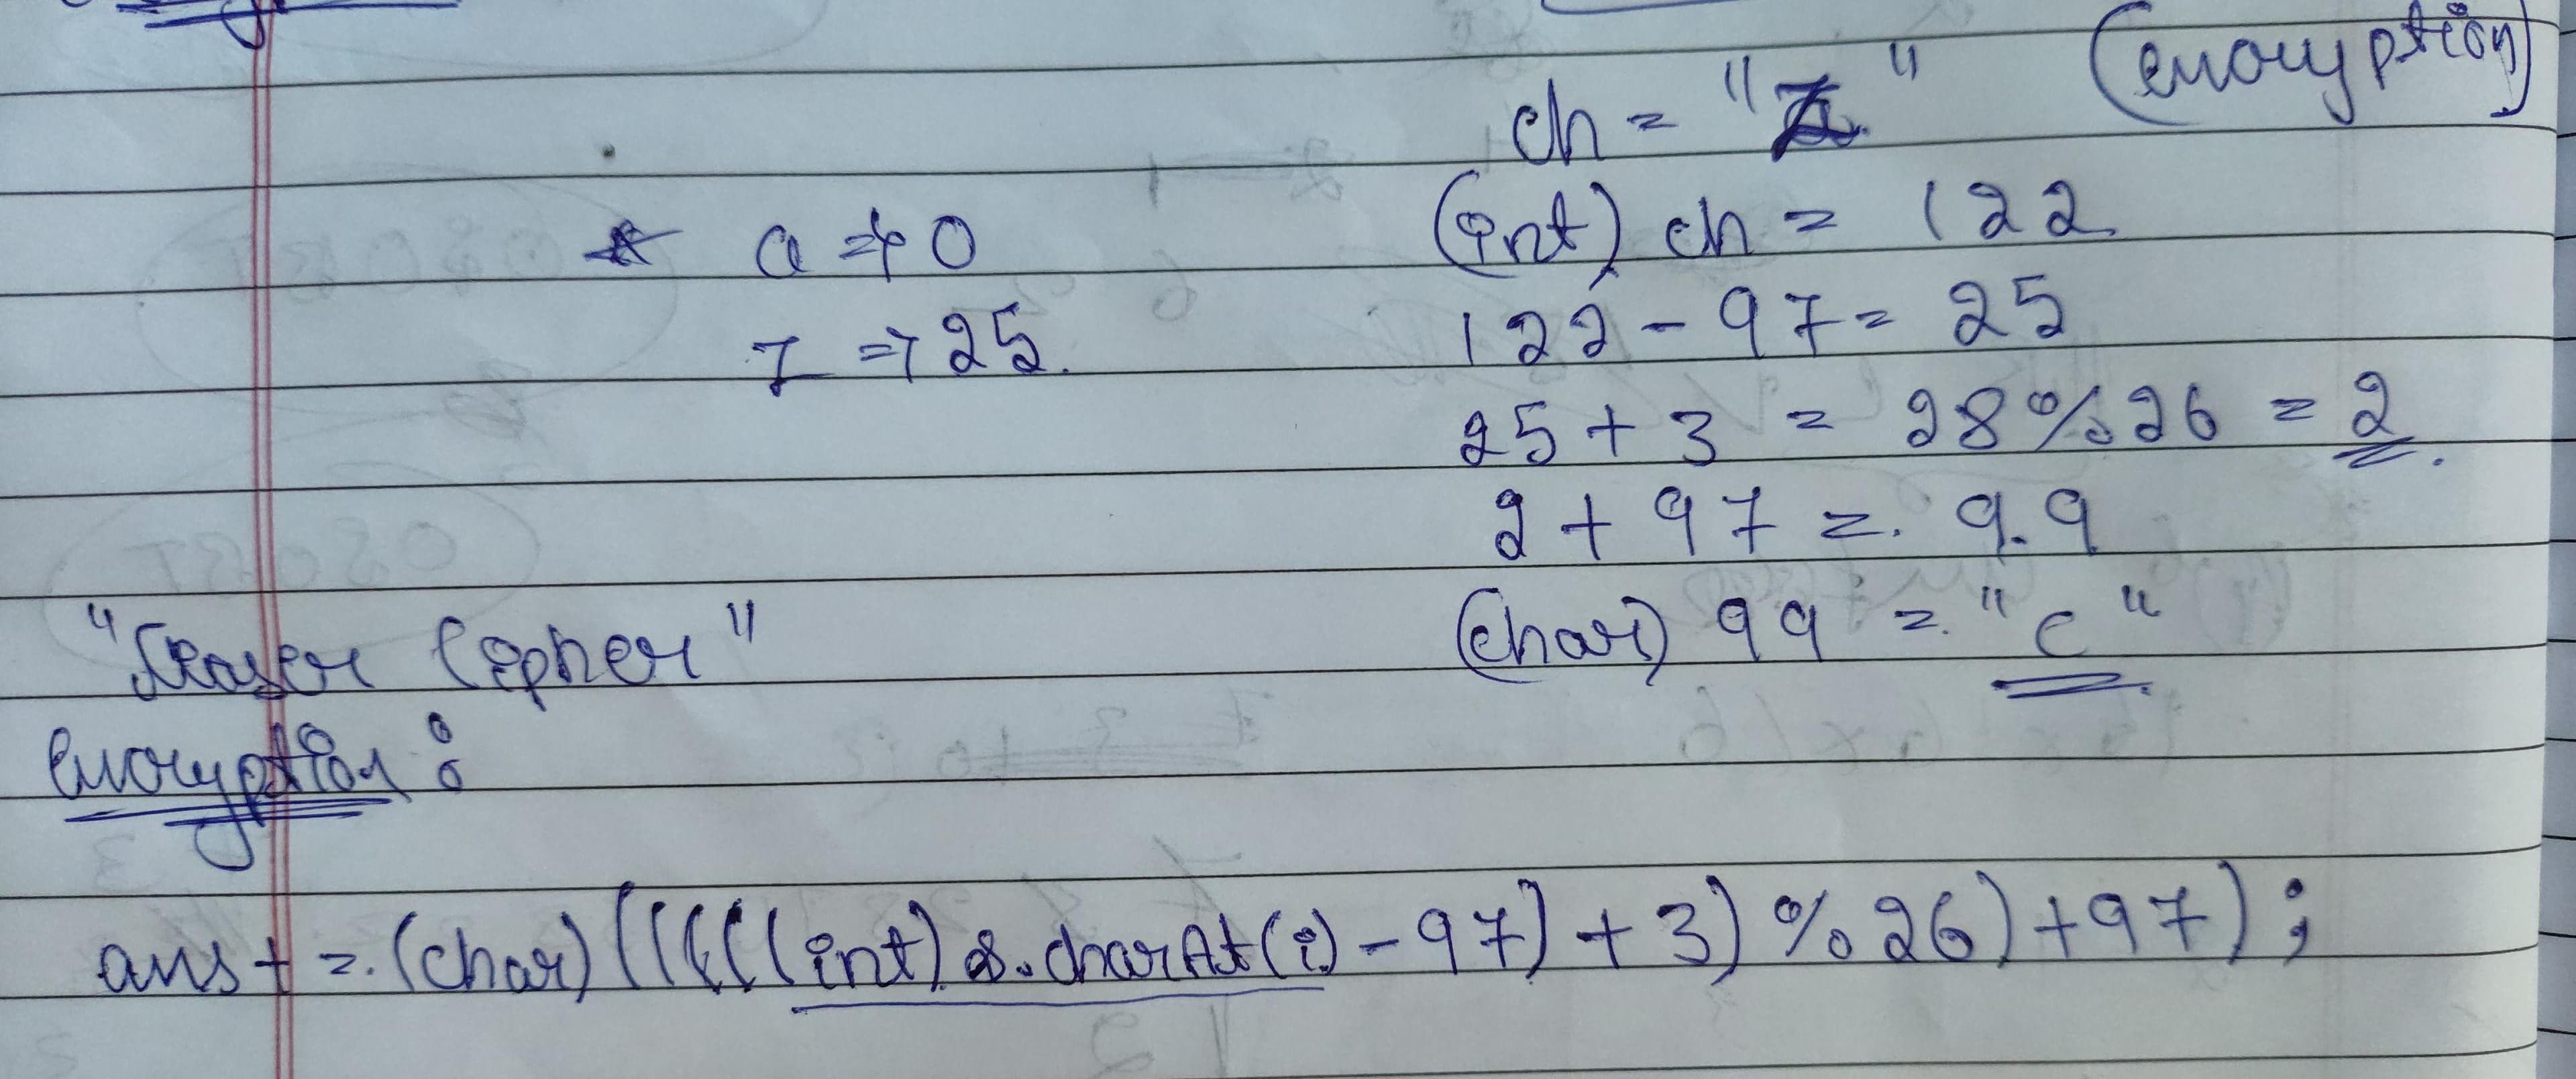 ch = "z" (encryption)
* a => 0
(int) ch = 122
z => 25.
122 - 97 = 25
25 + 3 = 28 % 26 = 2.
2 + 97 = 99
(char) 99 = "c"
"Ceaser Cipher"
encryption :
ans + = (char) (((((int) s.charAt(i) - 97) + 3) % 26) + 97) ;